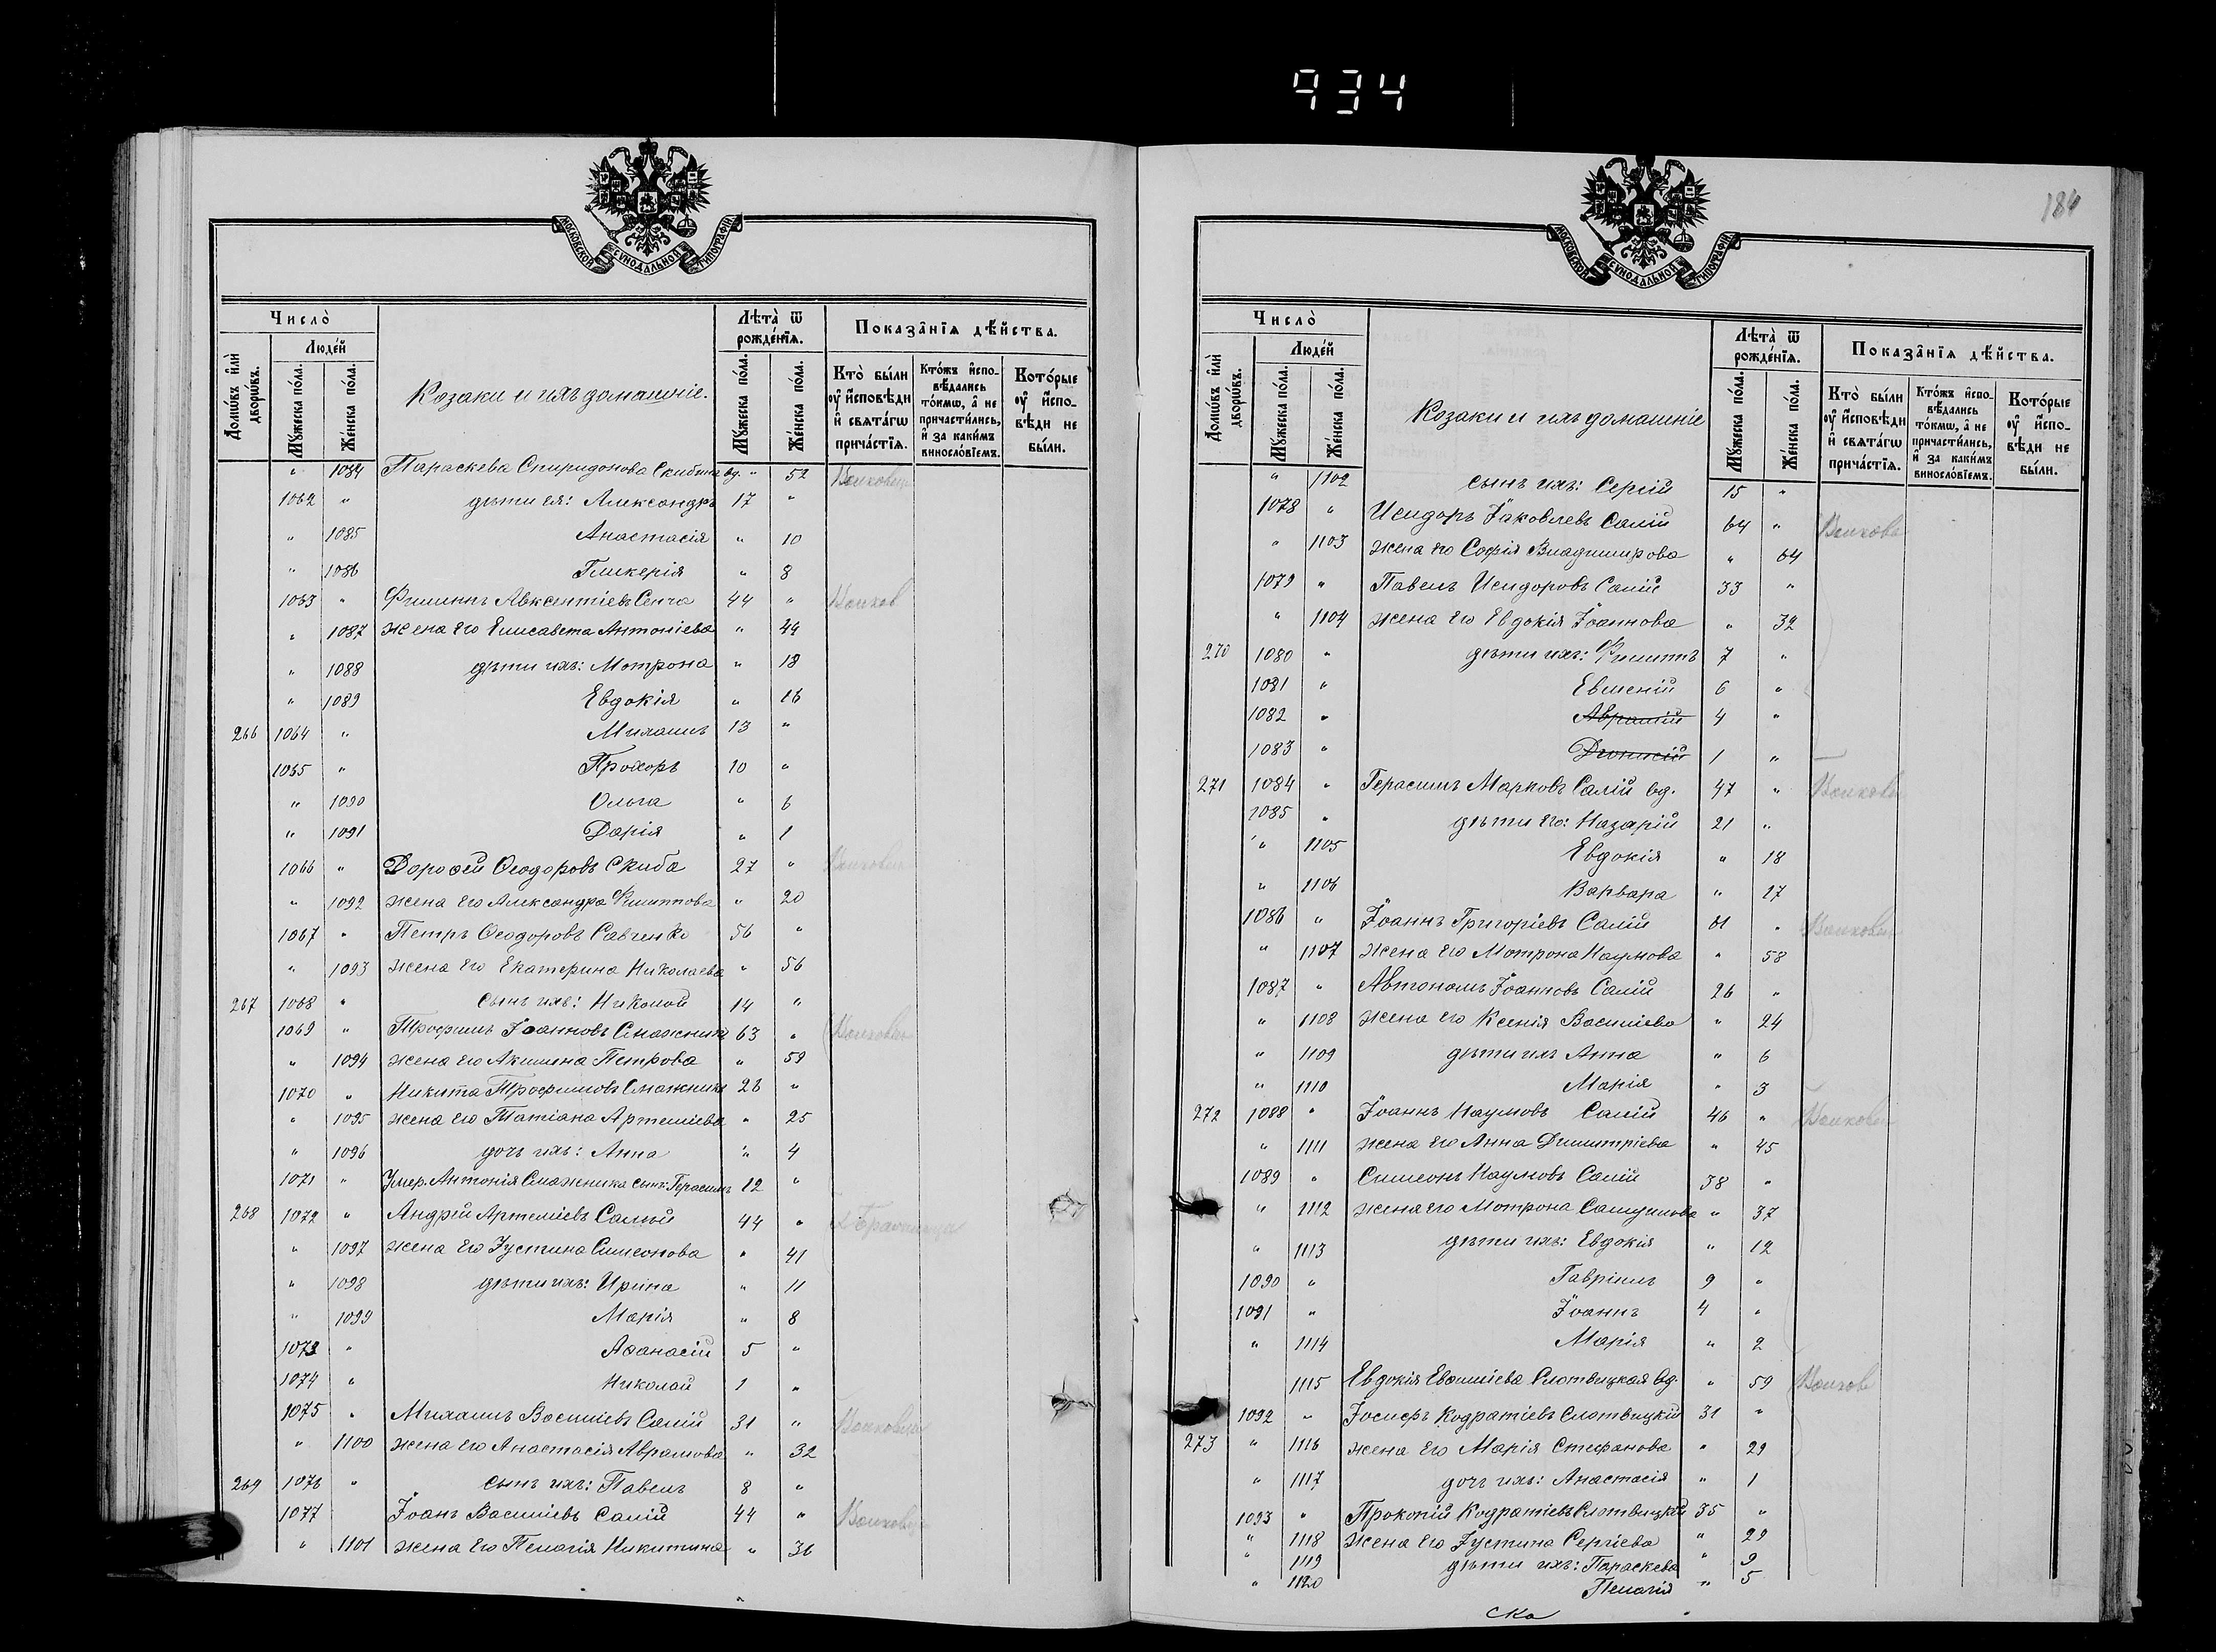 934
МОСКОВСКОЙ СѴНОДАЛЬНОЙ ТИПОГРАФІИ
Число̀
Людей
Домѡвъ и҆лѝ дворѡвъ.
Мꙋжеска пола.
Женска пола.
Козаки и ихъ домашніе.
Лѣта̀ ѿ рожденїѧ.
Мꙋжеска пола.
Женска пола.
Показанїѧ дѣйства.
Кто̀ были оу҆ и҆сповѣди и҆ свѧтагѡ причастїѧ.
Ктожъ и҆сповѣдались токмѡ, а҆ не причастились, и҆ за какимъ винословїемъ.
Которые оу҆ и҆сповѣди не были.
" 1084 Параскева Спиридонова вд. " 52
1062 " дѣти ея: Александръ 17 "
" 1085 Анастасія " 10
" 1086 Гликерія " 8
1063 " Филиппъ Авксентіевъ Сенча 44 "
" 1087 жена его Елисавета Антоніева " 44
" 1088 дѣти ихъ: Мотрона " 18
" 1089 Евдокія " 16
266 1064 " Михаилъ 13 "
1065 " Прохоръ 10 "
" 1090 Ольга " 6
" 1091 Дарія " 1
1066 " Дороѳей Ѳеодоровъ Скиба 27 "
" 1092 жена его Александра Филиппова " 20
1067 " Петръ Ѳеодоровъ Савченко 56 "
" 1093 жена его Екатерина Николаева " 56
267 1068 " сынъ ихъ: Николай 14 "
1069 " Трофимъ Іоанновъ Смажникъ 63 "
" 1094 жена его Акилина Петрова " 59
1070 " Никита Трофимовъ Смажникъ 26 "
" 1095 жена его Татіана Артеміева " 25
" 1096 дочь ихъ: Анна " 4
1071 " Умер. Антонія Смажника сынъ: Герасимъ 12 "
268 1072 " Андрей Артеміевъ Салый 44 "
" 1097 жена его Іустина Симеонова " 41
" 1098 дѣти ихъ: Ирина " 11
" 1099 Марія " 8
1073 " Аѳанасій 5 "
1074 " Николай 1 "
1075 " Михаилъ Василіевъ Салій 31 "
" 1100 жена его Анастасія Аврамова " 32
269 1076 " сынъ ихъ: Павелъ 8 "
1077 Іоанъ Василіевъ Салій 44 "
" 1101 жена его Пелагія Никитина " 36
МОСКОВСКОЙ СѴНОДАЛЬНОЙ ТИПОГРАФІИ
184
Число̀
Людей
Домѡвъ и҆лѝ дворѡвъ.
Мꙋжеска пола.
Женска пола.
Козаки и ихъ домашніе
Лѣта̀ ѿ рожденїѧ.
Мꙋжеска пола.
Женска пола.
Показанїѧ дѣйства.
Кто̀ были оу҆ и҆сповѣди и҆ свѧтагѡ причастїѧ.
Ктожъ и҆сповѣдались токмѡ, а҆ не причастились, и҆ за какимъ винословїемъ.
Которые оу҆ и҆сповѣди не были.
" 1102 сынъ ихъ: Сергій 15 "
1078 " Исидоръ Іаковлевъ Салій 64 "
" 1103 жена его Софія Владимирова " 64
1079 " Павелъ Исидоровъ Салій 33 "
" 1104 жена его Евдокія Іоаннова " 32
270 1080 " дѣти ихъ: Филиппъ 7 "
1081 " Евменій 6 "
1082 " Аврамій 4 "
1083 " Діонисій 1 "
271 1084 " Герасимъ Марковъ Салій вд. 47 "
1085 " дѣти его: Назарій 21 "
" 1105 Евдокія " 18
" 1106 Варвара " 17
1086 " Іоаннъ Григоріевъ Салій 61 "
" 1107 жена его Мотрона Наумова " 58
1087 " Автономъ Іоанновъ Салій 26 "
" 1108 жена его Ксенія Василіева " 24
" 1109 дѣти ихъ Анна " 6
" 1110 Марія " 3
272 1088 " Іоаннъ Наумовъ Салій 46 "
" 1111 жена его Анна Димитріева " 45
1089 " Симеонъ Наумовъ Салій 38 "
" 1112 жена его Мотрона Самуилова " 37
" 1113 дѣти ихъ: Евдокія " 12
1090 " Гавріилъ 9 "
1091 " Іоаннъ 4 "
" 1114 Марія " 2
1115 Евдокія Слотвицкая вд. " 59
1092 " Іосифъ Кодратіевъ Слотвицкій 31 "
273 " 1116 жена его Марія Стефанова " 29
" 1117 дочь ихъ: Анастасія " 1
1093 " Прокопій Кодратіевъ Слотвицкій 35 "
" 1118 жена его Іустина Сергіева " 29
" 1119 дѣти ихъ: Параскева " 9
" 1120 Пелагія " 5